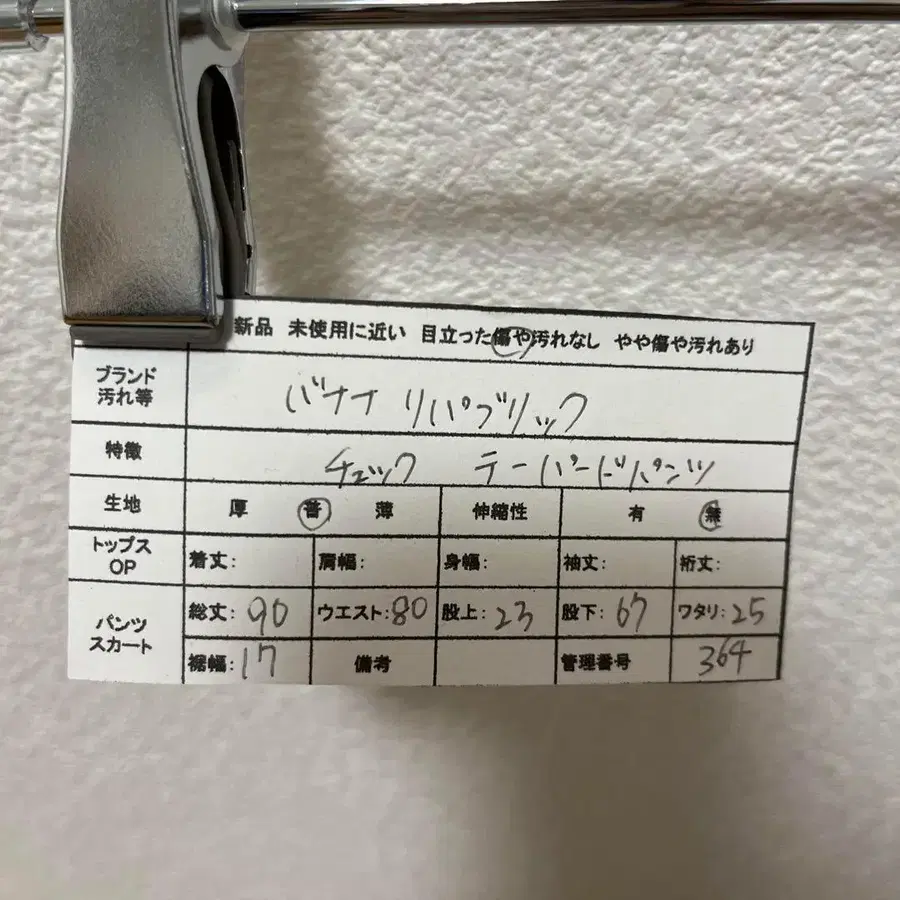 新品 未使用に近い 目立った傷や汚れなし やや傷や汚れあり
ブランド
汚れ等 バナナ リパブリック
特徴 チェック テーパードパンツ
生地 厚 普 薄 伸縮性 有 無
トップス
OP 着丈: 肩幅: 身幅: 袖丈: 裄丈:
パンツ
スカート 総丈: 90 ウエスト: 80 股上: 23 股下: 67 ワタリ: 25
裾幅: 17 備考 管理番号 364